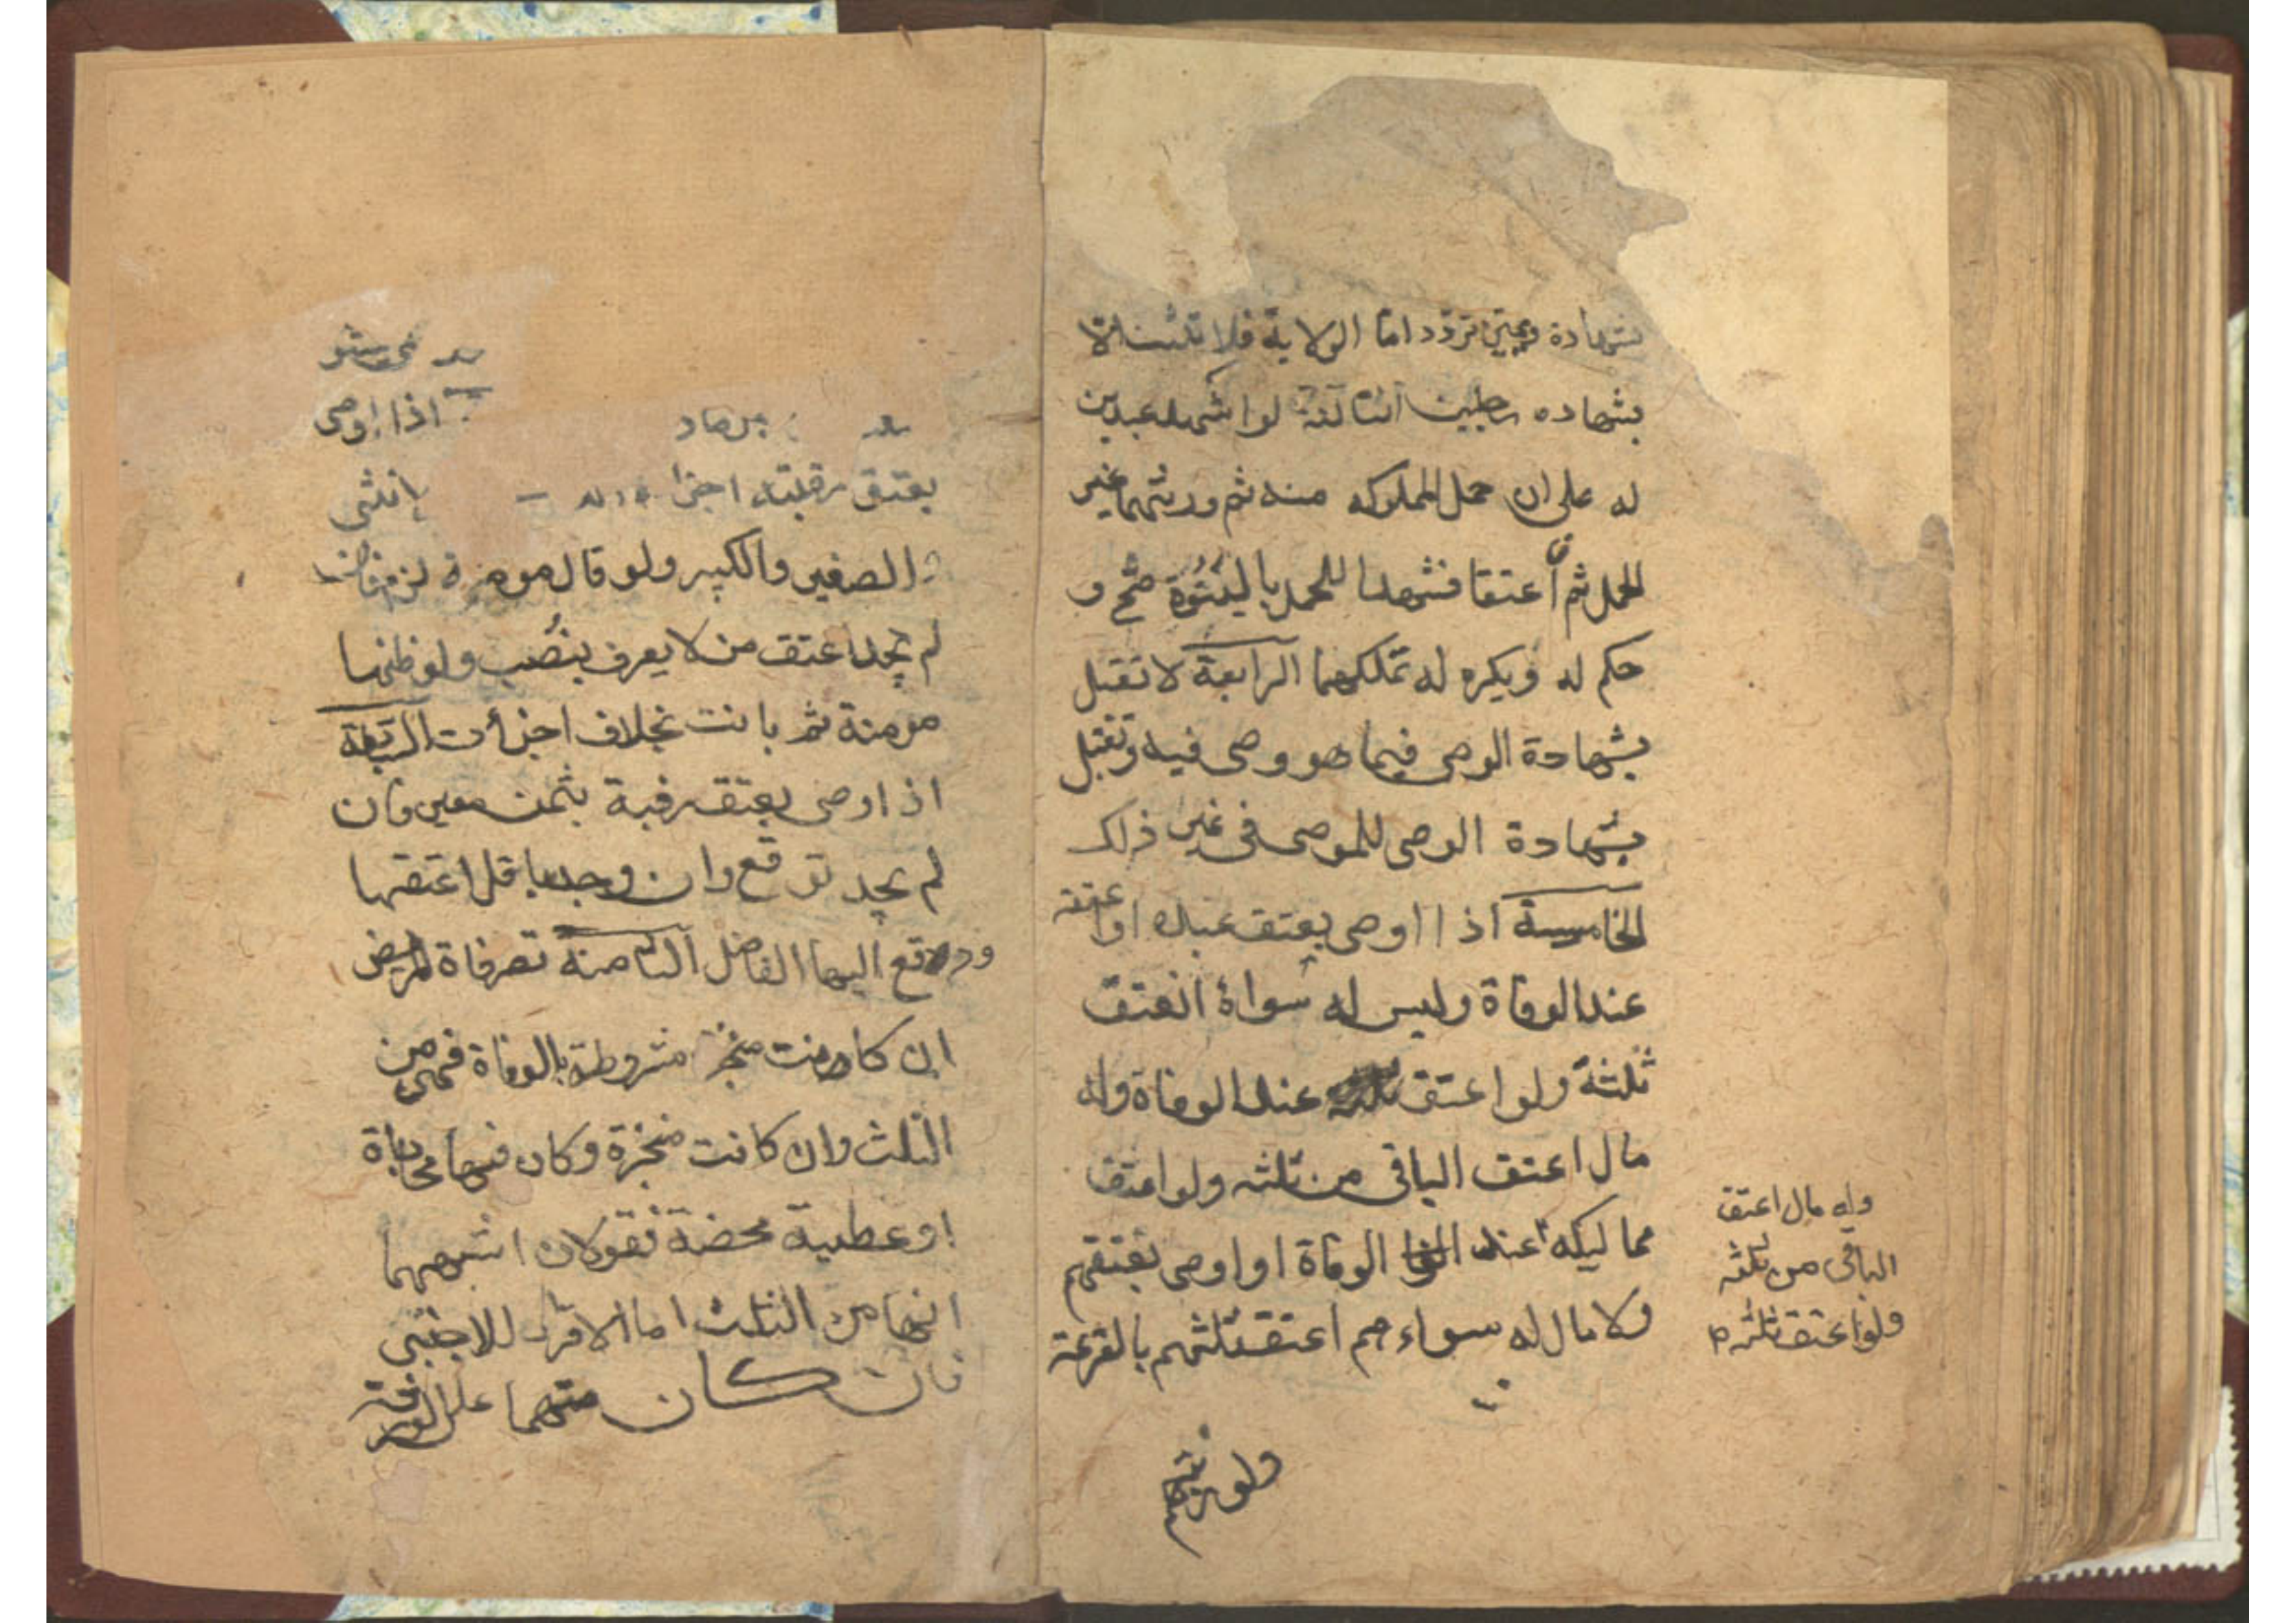 بشهادة ويمين تردد اما الولاية فلا تثبت الا
بشهاده رجلين الثالثة لو اشهد عبدين
له على ان حمل المملوكه منه ثم ورثهما غير
الحمل ثم أعتقا فشهدا للحمل بالبنوة صح و
حكم له ويكره له تملكهما الرابعة لا تقبل
بشهادة الوصى فيما هو وصى فيه وتقبل
بشهادة الوصى للموصى فى غير ذلك
الخامسة اذا اوصى بعتق عبده او اعتقه
عند الوفاة وليس له سواه انعتق
ثلثه ولو اعتق ثلثه عند الوفاة وله
مال اعتق الباقى من ثلثه ولو اعتق
مماليكه عند الوفاة او اوصى بعتقهم
ولا مال له سواءهم اعتق ثلثهم بالقرعة
ولو رتبهم
وله مال اعتق
الباقى من ثلثه
ولو اعتق ثلثه
اذا اوصى
بعتق رقبة اجزا بانثى
الصغير والكبير ولو قال مومنة لزم فان
لم يجد اعتق من لا يعرف بنصب ولو ظنها
مومنة ثم بانت بخلاف اجزأت السابعة
اذا اوصى بعتق رقبة بثمن معين فان
لم يجد توقع وان وجد باقل اعتقها
ودفع اليها الفاضل الثامنة تصرفاة المريض
ان كانت مشروطة بالوفاة فهى من
الثلث وان كانت منجزة وكان فيها محاباة
او عطية محضة فقولان اشبههما
انها من الثلث اما الاقرار للاجنبى
فان كان متهما على الورثة